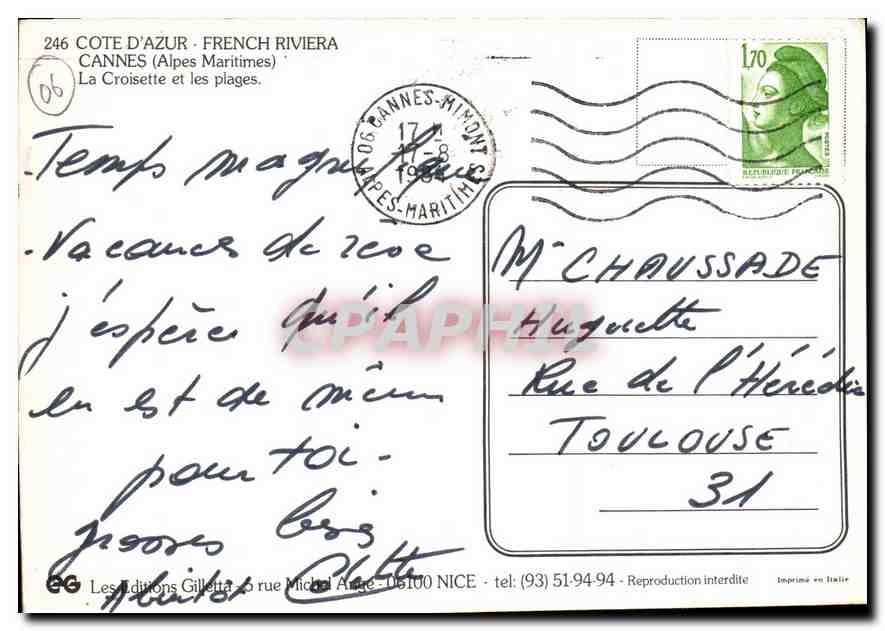 246 COTE D'AZUR - FRENCH RIVIERA
CANNES (Alpes Maritimes)
La Croisette et les plages.
06
06 CANNES-MIMONT
17 H
17-8
1984
ALPES-MARITIMES
1,70
POSTES
REPUBLIQUE FRANÇAISE
- Temps magnifique
- Vacances de rêve
j'espère qu'il
en est de même
pour toi -
grosses bises
A bientôt Colette
Mme CHAUSSADE
Huguette
Rue de l'Hérédia
TOULOUSE
31
CPAPHIL
EG Les Editions Gilletta - 5 rue Michel Ange - 06100 NICE - tel: (93) 51-94-94 - Reproduction interdite
Imprimé en Italie